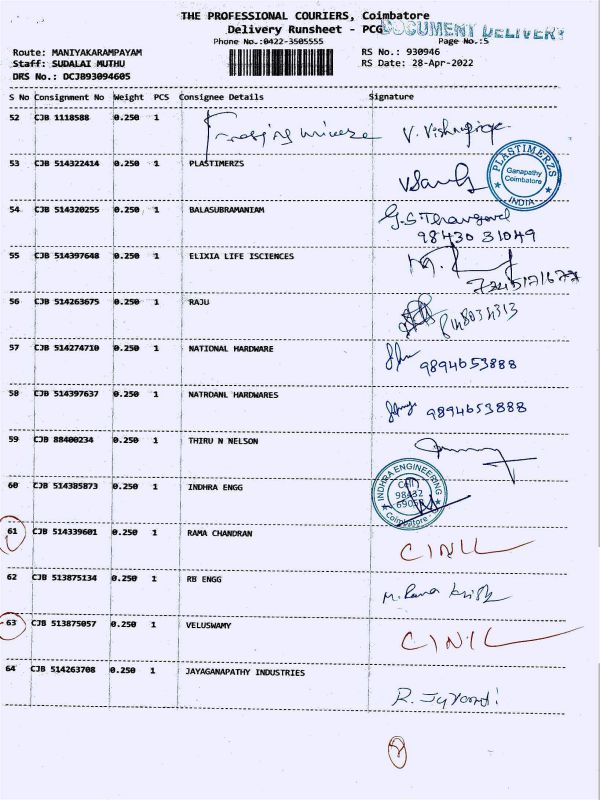 THE PROFESSIONAL COURIERS, Coimbatore
Delivery Runsheet - PCG
DOCUMENT DELIVERY
Phone No.:0422-3505555
Page No.:5
Route: MANIYAKARAMPAYAM
RS No.: 930946
Staff: SUDALAI MUTHU
RS Date: 28-Apr-2022
DRS No.: DCJB93094605
S No Consignment No Weight PCS Consignee Details Signature
52 CJB 1118588 0.250 1
53 CJB 514322414 0.250 1 PLASTIMERZS
PLASTIMERZS
Ganapathy
Coimbatore
INDIA
54 CJB 514320255 0.250 1 BALASUBRAMANIAM
98430 31049
55 CJB 514397648 0.250 1 ELIXIA LIFE ISCIENCES
56 CJB 514263675 0.250 1 RAJU
57 CJB 514274710 0.250 1 NATIONAL HARDWARE
9894653888
58 CJB 514397637 0.250 1 NATROANL HARDWARES
9894653888
59 CJB 88400234 0.250 1 THIRU N NELSON
60 CJB 514385873 0.250 1 INDHRA ENGG
INDHRA ENGINEERING
Coimbatore
61 CJB 514339601 0.250 1 RAMA CHANDRAN
62 CJB 513875134 0.250 1 RB ENGG
63 CJB 513875057 0.250 1 VELUSWAMY
64 CJB 514263708 0.250 1 JAYAGANAPATHY INDUSTRIES